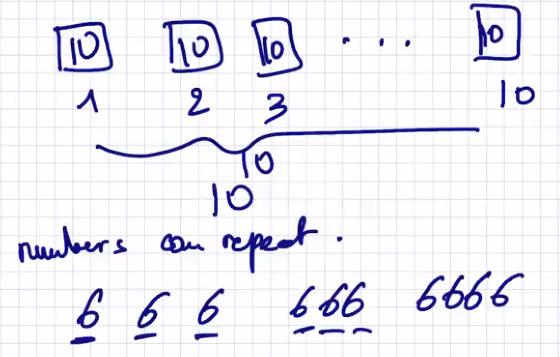 10 10 10 ... 10
1 2 3 10
10
10
numbers can repeat.
6 6 6 666 6666